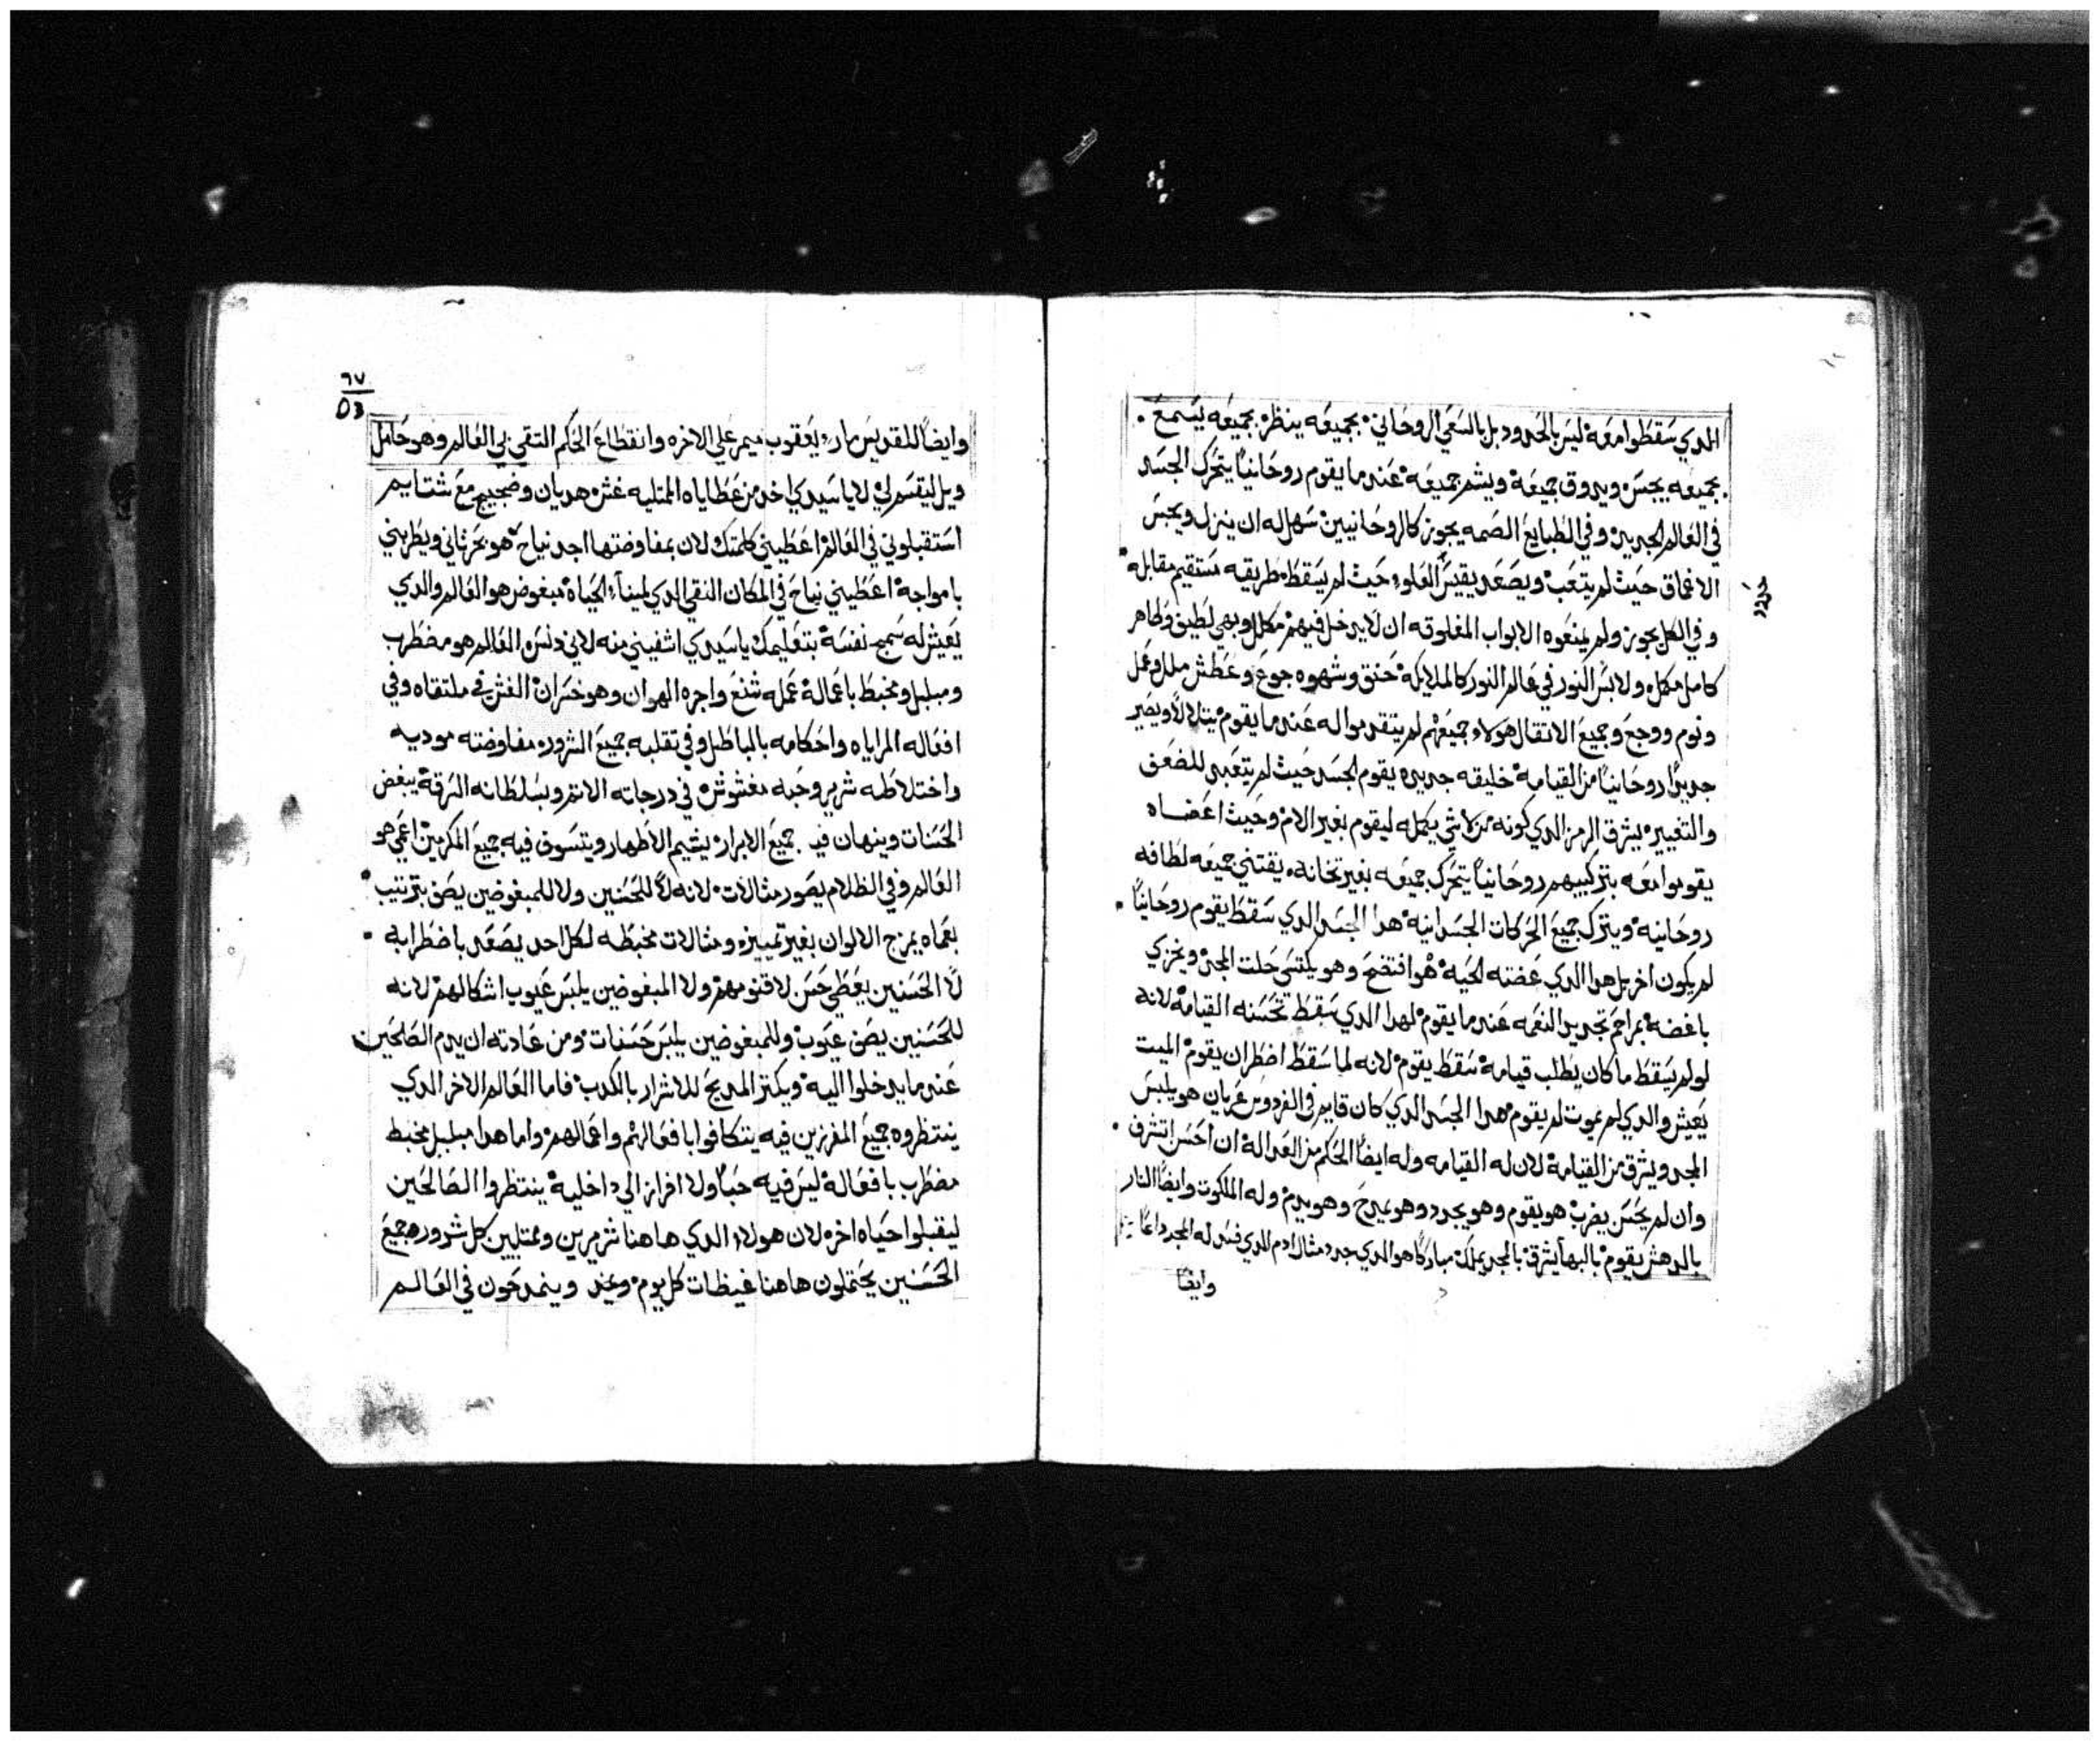 الدي سَقطوا معَه ليسَ بالحَدود بل بالسَعَي الروحَاني بجميعَه ينظر بجميعَه يسَمع
بجميعَه يحِسَ ويدوق جميعَه ويشم جميعَه عَندما يقوم روحَانياً يتحَرك الجسَد
في العَالم الجديد وفي الطبايع الصمه يجوز كالروحَانيين سَهل له ان ينزل ويحبسَ
الاعماق حَيث لم يتعَب ويصَعَد يقيسَ العَلو حَيث لم يسَقط طريقه مسَتقيم مقابله
وفي الكل يجوز ولم يمنعَوه الابواب المغلوقه ان لا يدخل فيهم مكلل وبهي لطيف وطاهر
كامل مكلل ولابسَ النور في عَالم النور كالملايكه حَنق وشهوه جوع وعَطش ملل وعمَل
ونوم ووجع وجميع الاتقال هولاء جميعَهم لم يتقدموا له عَندما يقوم يتلالا ويصَير
جديداً روحَانياً من القيامه خليقه جديده يقوم الجسَد حَيث لم يتعَبد للضعَف
والتغيير يشرق الرمز الدي كونه من لاشي يكمله ليقوم بغير الام وحَيث اعَضاه
يقوموا معَه بتركيبهم روحَانياً يتحَرك جميعَه بغير تخانه يقتني جميعَه لطافه
روحَانيه ويترك جميع الحَركات الجسَدانيه هدا الجسَد الدي سَقط يقوم روحَانياً
لم يكون اخر بل هدا الدي عَضته الحَيه هوا افتضحَ وهو يكتسَي حَلت المجد ويخزي
باغضه بمراحَم تجديد النعَمه عَندما يقوم لهدا الدي سَقط تحَسَنه القيامه لانه
لو لم يسَقط ما كان يطلب قيامه سَقط يقوم لانه لما سَقط اضطر ان يقوم الميت
يعَيش والدي لم يموت لم يقوم هدا الجسَد الدي كان قايم في الفردوسَ عَريان هو يلبسَ
المجد ويشرق من القيامه لان له القيامه وله ايضاً الحَكم من العَداله ان احَسَن اتشرف
وان لم يحَسَن يضرب هو يقوم وهو يجدد وهو يمدحَ وهو يدم وله الملكوت وايضاً النار
بالدهش يقوم بالبها يشرق بالمجد يملك مباركاً هو الدي جدد مثال ادم الدي فسَد له المجد دائماً
وايضاً
٦٧
وايضاً للقديسَ مار يعَقوب ميمر عَلي الاخره وانقطاعَ الحَكم التقي لي العَالم وهو حَامل
ويل ليقسَم لي لا يا سَيدي اخد من عَطاياه الممتليه غش هديان وضجيج معَ شتايم
اسَتقبلوني في العَالم اعَطيني كلمتك لان بمفاوضتها اجد نياحَ هو بحَر تاني ويطربني
بامواجه اعَطيني نياحَ في المكان النقي الدي لمينا الحَياه مبغوض هو العَالم والدي
يعَيش له سَمج نفسَه بتعَليمك يا سَيدي اشفيني منه لاني دنسَ العَالم هو مضطرب
ومبلبل ومخبط باعَماله عَمله شنع واجره الهوان وهو خسَران الغش في ملتقاه وفي
افعَاله المراياه واحَكامه بالباطل وفي تقلبه جميع الشرور مفاوضته موديه
واختلاطه شرير وحَبه مغشوش في درجاته الاتم وبسَلطانه السَرقه يبغض
الحَسَنات وينهان فيه جميعَ الابرار يشيم الاطهار ويتسَوق فيه جميعَ المكرمين اعَمي هو
العَالم وفي الظلام يصَور مثالات لانه لا للحَسَنين ولا للمبغوضين يصَف بترتيب
بعَماه يمزج الالوان بغير تمييز ومثالات مخبطه لكل احد يصَعَد باضطرابه
لا الحَسَنين يعَطي حَسَن لاقنومهم ولا المبغوضين يلبسَ عَيوب اشكالهم لانه
للحَسَنين يصَف عَيوب وللمبغوضين يلبسَ حَسَنات ومن عَادته ان يدم الصَالحَين
عَندما يدخلوا اليه ويكتر المديحَ للاشرار بالكدب فاما العَالم الاخر الدي
ينتظروه جميعَ المفرزين فيه يتكافوا بافعَالهم واعَمالهم واما هدا مبلبل مخبط
مضطرب بافعَاله ليسَ فيه حَباً ولا افراز الي داخلية ينتظروا الصَالحَين
ليقبلوا حَياه اخره لان هولاء الدي هاهنا شريرين وممتليين كل شرور جميعَ
الحَسَنين يحَتملون هاهنا غيظات كل يوم وغد وينمدحَون في العَالم